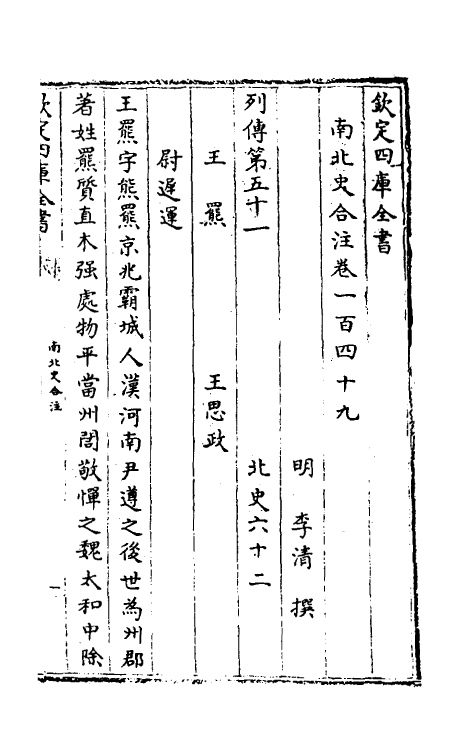 欽定四庫全書
南北史合注卷一百四十九
明 李清 撰
列傳第五十一 北史六十二
王羆 王思政
尉遲運
王羆字熊羆京兆霸城人漢河南尹遵之後世為州郡
著姓羆質直木强處物平當州閭敬憚之魏太和中除
欽定四庫全書
南北史合注
一